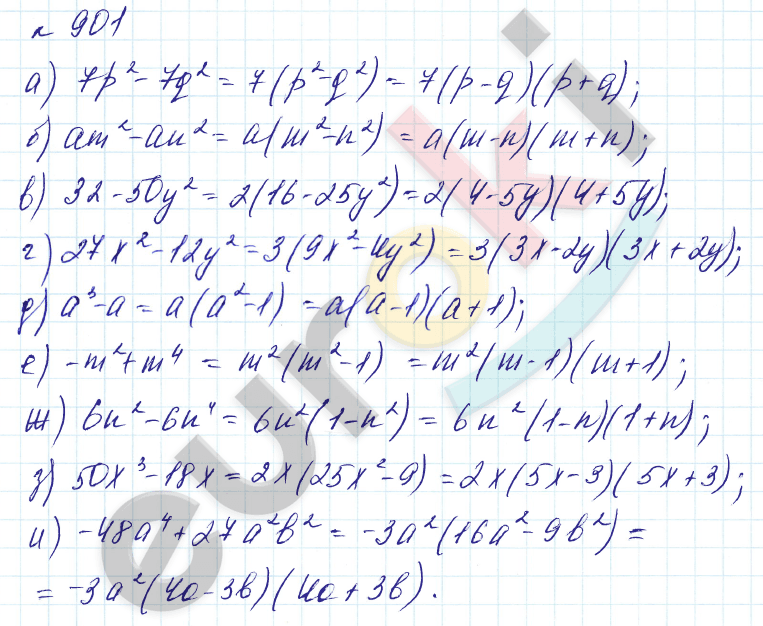 № 901
а) 7p² - 7q² = 7(p² - q²) = 7(p - q)(p + q);
б) am² - an² = a(m² - n²) = a(m - n)(m + n);
в) 32 - 50y² = 2(16 - 25y²) = 2(4 - 5y)(4 + 5y);
г) 27x² - 12y² = 3(9x² - 4y²) = 3(3x - 2y)(3x + 2y);
д) a³ - a = a(a² - 1) = a(a - 1)(a + 1);
е) -m² + m⁴ = m²(m² - 1) = m²(m - 1)(m + 1);
ж) 6n² - 6n⁴ = 6n²(1 - n²) = 6n²(1 - n)(1 + n);
з) 50x³ - 18x = 2x(25x² - 9) = 2x(5x - 3)(5x + 3);
и) -48a⁴ + 27a²b² = -3a²(16a² - 9b²) =
= -3a²(4a - 3b)(4a + 3b).
euroki